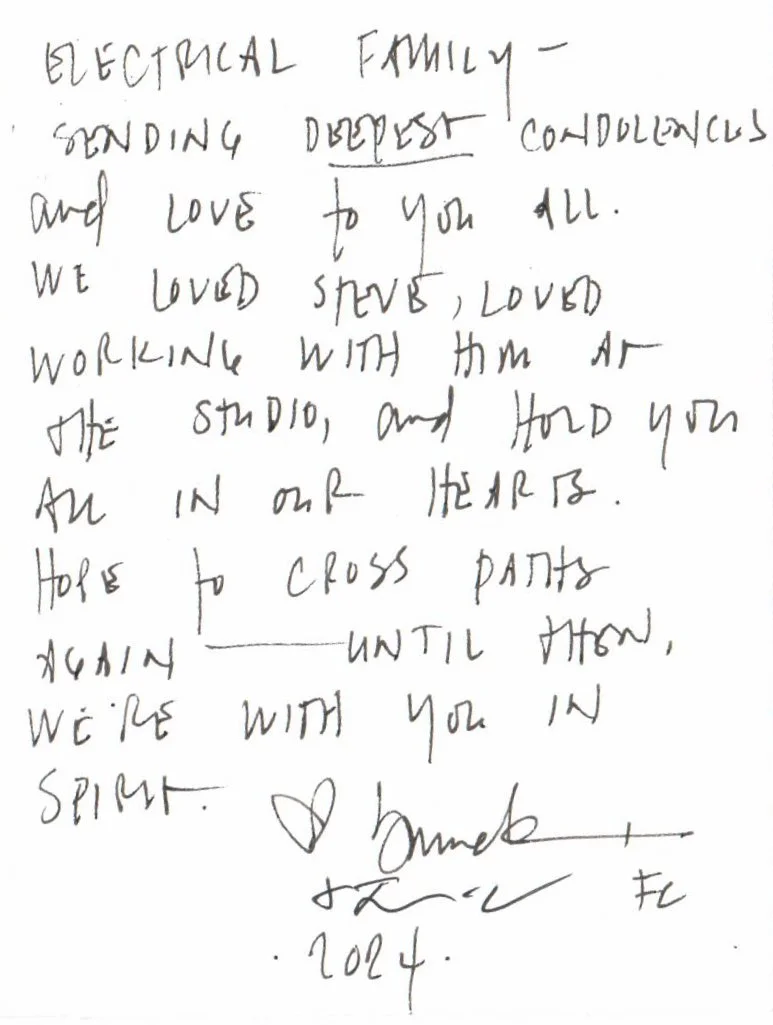 ELECTRICAL FAMILY —
SENDING DEEPEST CONDOLENCES
and LOVE to you ALL.
WE LOVED STEVE, LOVED
WORKING WITH HIM AT
THE STUDIO, and HOLD you
ALL IN OUR HEARTS.
HOPE to CROSS PATHS
AGAIN — UNTIL THEN,
WE'RE WITH you IN
SPIRIT. ♡
2024.